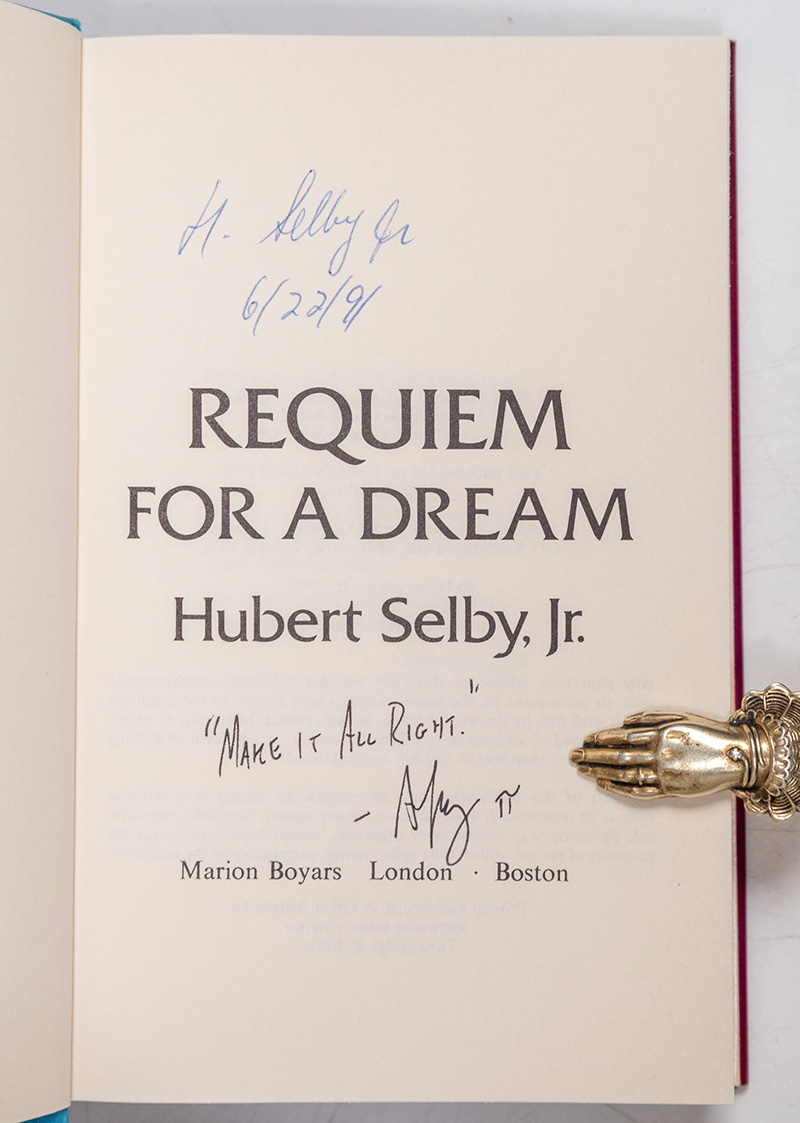 H. Selby Jr
6/22/91
REQUIEM
FOR A DREAM
Hubert Selby, Jr.
"MAKE IT ALL RIGHT."
π
Marion Boyars London · Boston